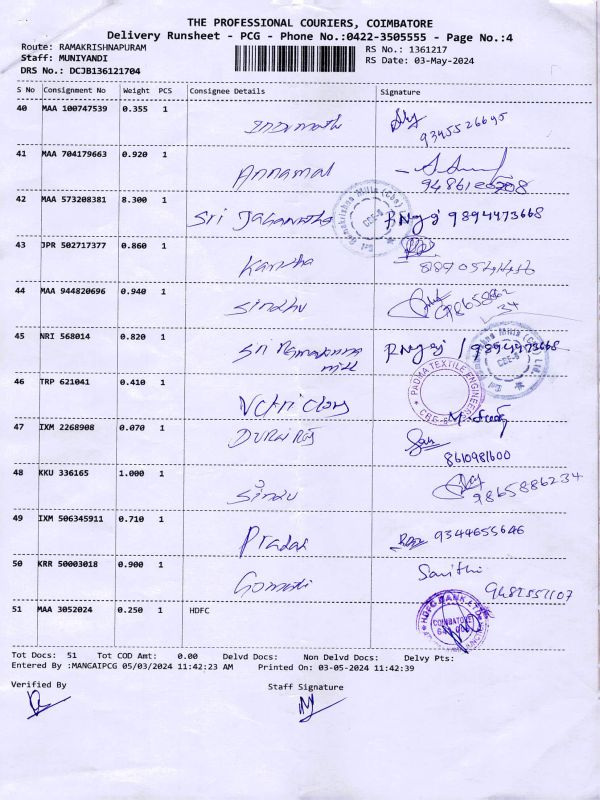 THE PROFESSIONAL COURIERS, COIMBATORE
Delivery Runsheet - PCG - Phone No.:0422-3505555 - Page No.:4
Route: RAMAKRISHNAPURAM RS No.: 1361217
Staff: MUNIYANDI RS Date: 03-May-2024
DRS No.: DCJB136121704
S No Consignment No Weight PCS Consignee Details Signature
40 MAA 100747539 0.355 1
Indumathi 9345526695
41 MAA 704179663 0.920 1
Annamal
42 MAA 573208381 8.300 1
Sri 9894473668
43 JPR 502717377 0.860 1
Kavitha
44 MAA 944820696 0.940 1
Sindhu
45 NRI 568014 0.820 1
Sri Ramakrishna 9894473668
mill
46 TRP 621041 0.410 1
PADMA TEXTILE ENGINEERS
47 IXM 2268908 0.070 1
DURAI RAJ
8610981600
48 KKU 336165 1.000 1
Sindu 9865886234
49 IXM 506345911 0.710 1
9344655646
50 KRR 50003018 0.900 1
Gomathi
51 MAA 3052024 0.250 1 HDFC
HDFC BANK LTD
COIMBATORE
Tot Docs: 51 Tot COD Amt: 0.00 Delvd Docs: Non Delvd Docs: Delvy Pts:
Entered By :MANGAIPCG 05/03/2024 11:42:23 AM Printed On: 03-05-2024 11:42:39
Verified By Staff Signature